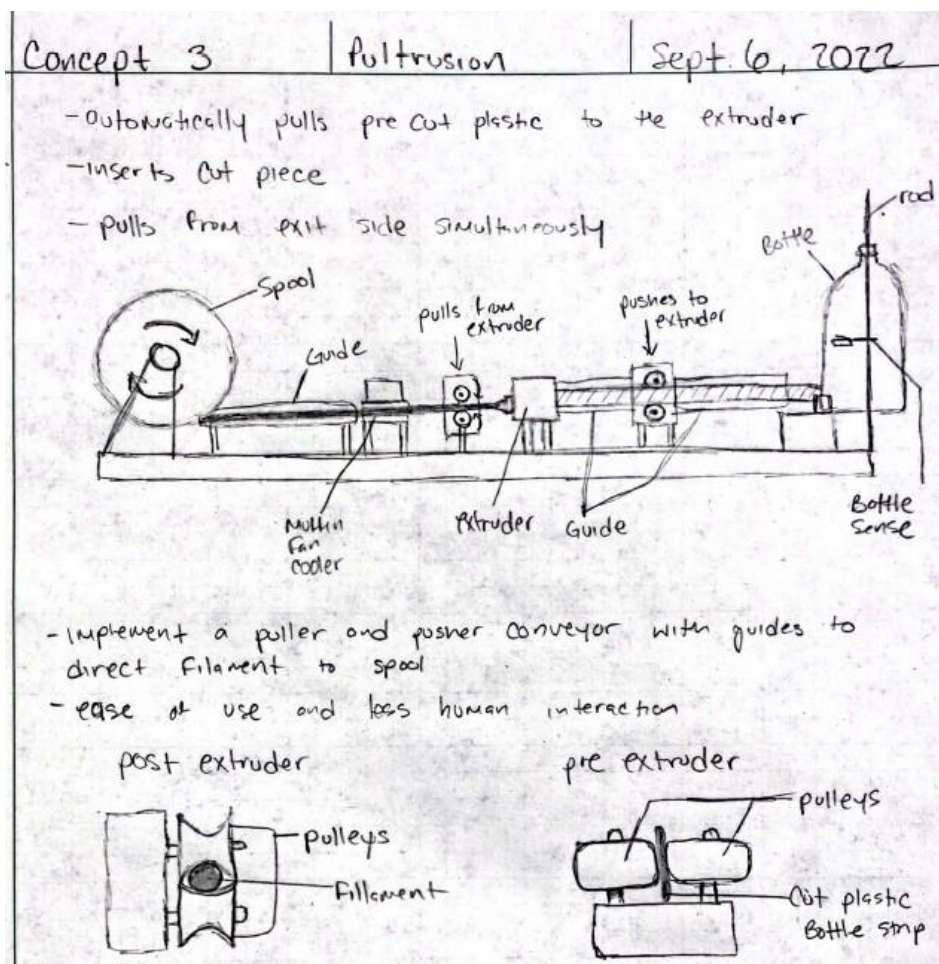 Concept 3 Pultrusion Sept. 6, 2022
- automatically pulls pre cut plastic to the extruder
- inserts cut piece
- pulls from exit side simultaneously
rod
Bottle
Spool
pulls from
extruder
pushes to
extruder
Guide
Fan
cooler
extruder
Guide
Bottle
Sense
- implement a puller and pusher conveyor with guides to
direct filament to spool
- ease of use and less human interaction
post extruder
pre extruder
pulleys
Fillament
pulleys
Cut plastic
Bottle strip